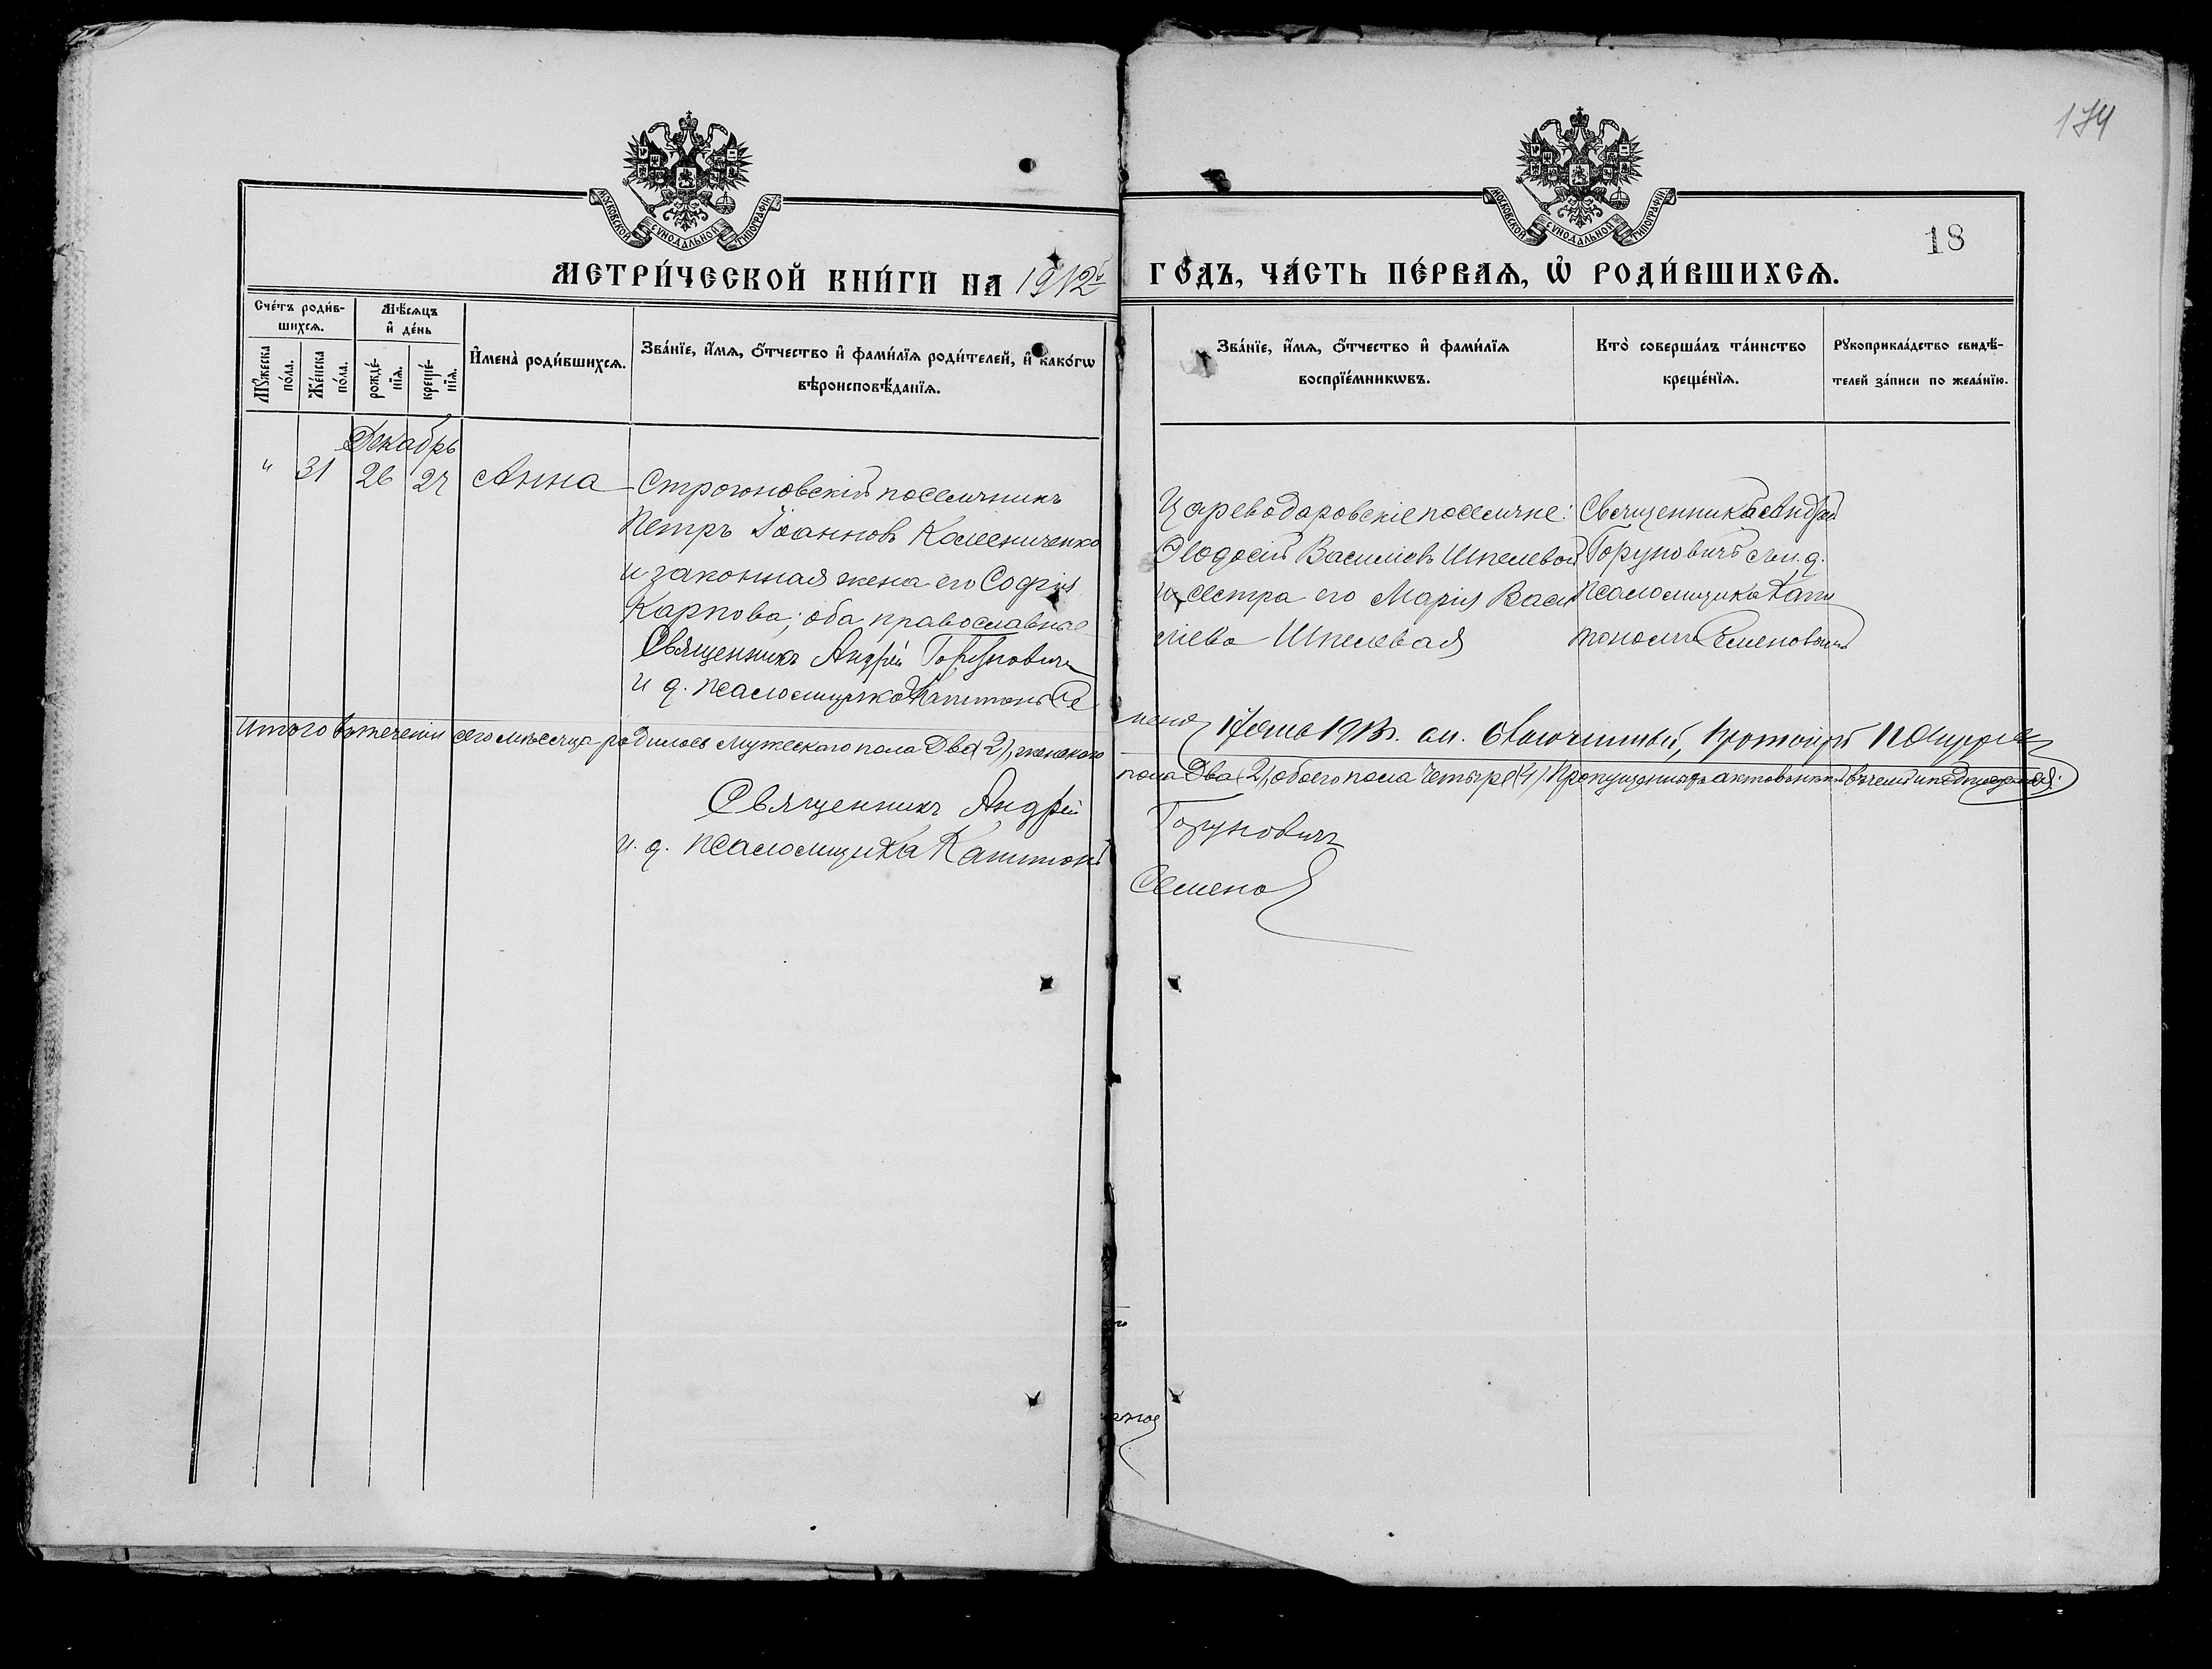 174
18
МОСКОВСКОЙ СѴНОДАЛЬНОЙ ТИПОГРАФІИ
МОСКОВСКОЙ СѴНОДАЛЬНОЙ ТИПОГРАФІИ
МЕТРИ́ЧЕСКОЙ КНИ́ГИ НА 1912й ГО́ДЪ, ЧА́СТЬ ПЕ́РВАЯ, Ѡ҆ РОДИ́ВШИХСЯ.
Сче́тъ роди́в-
шихсѧ.
Мꙋ́жеска
по́ла.
Же́нска
по́ла.
Мѣ́сѧцъ
и҆ де́нь
рожде́-
нїѧ.
креще́-
нїѧ.
И҆мена̀ роди́вшихсѧ.
Зва́нїе, и҆́мѧ, ѻ҆́тчество и҆ фами́лїѧ роди́телей, и҆ како́гѡ
вѣроисповѣ́данїѧ.
Зва́нїе, и҆́мѧ, ѻ҆́тчество и҆ фами́лїѧ
воспрїе́мникѡвъ.
Кто̀ соверша́лъ та́инство
креще́нїѧ.
Рꙋкоприкла́дство свидѣ́-
телей за́писи по жела́нїю.
Декабрь
" 31 26 27 Анна
Строюновскій поселичникъ
Петръ Іоанновъ Колесниченко
и законная жена его Софія
Карпова; оба православные
Священникъ Андрей Горуновичъ
и д. псаломщика Капитонъ Се
менов
Цареводаровскіе поселичне:
Ѳеодосій Василіевъ Шпелевой
и сестра его Марія Васи
ліева Шпелевая
Священникъ Андрей
Горуновичъ с и. д.
псаломщика Капи
тономъ Семеновымъ
1913г. Благочинный, Протоіерей
Итого въ теченіи сего мѣсяца родилось мужескаго пола два (2), женскаго
пола два (2), обоего пола четыре (4). Пропущенныхъ актовъ
Священникъ Андрей Горуновичъ
и. д. псаломщика Капитонъ Семенов